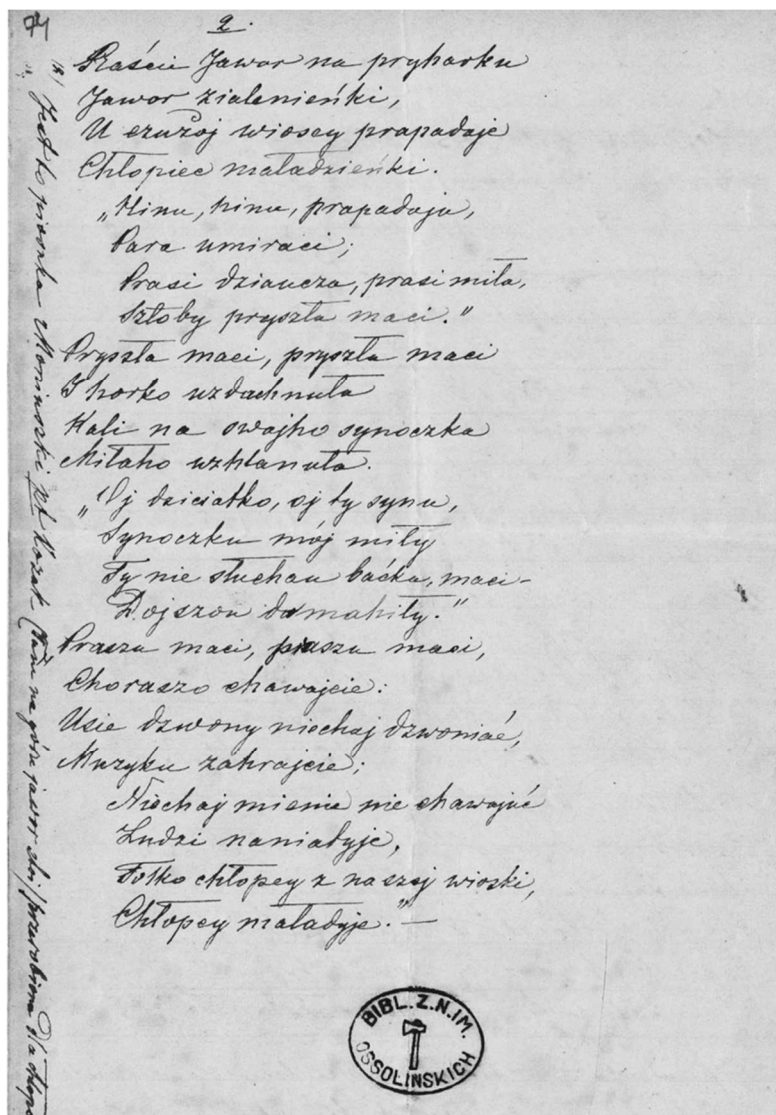 2.
Raście Jawor na pryharku
Jawor zialenieńki,
U czużoj wioscy prapadaje
Chłopiec maładzieńki.
„Hinu, hinu, prapadaju,
Para umiraci;
Prasi dziaucza, prasi miła,
Sztoby pryszła maci."
Pryszła maci, pryszła maci
I horko uzdachnuła
Kali na swajho synoczka
Miłaho uzhlanuła.
„Oj dzieciatko, oj ty synu,
Synoczku mój miły
Ty nie słuchau baćka, maci –
Dojszou da mahiły."
Praszu maci, praszu maci,
Choraszo chawajcie:
Usie dzwony niechaj dzwoniać,
Muzyku zahrajcie;
Niechaj mienia nie chawajuć
Ludzi naniatyje,
Tolko chłopcy z naszej wioski,
Chłopcy maładyje." —
Jest to piosnka Moniuszki pt. Kozak (Tam na górze jawor stoi) przerobiona dla
BIBL. Z. N. IM.
OSSOLIŃSKICH